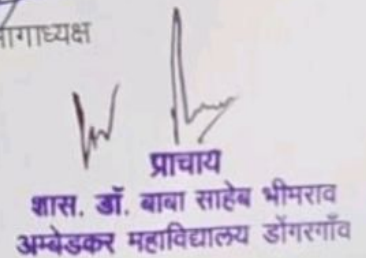 ागाध्यक्ष
प्राचार्य
शास. डॉ. बाबा साहेब भीमराव
अम्बेडकर महाविद्यालय डोंगरगाँव